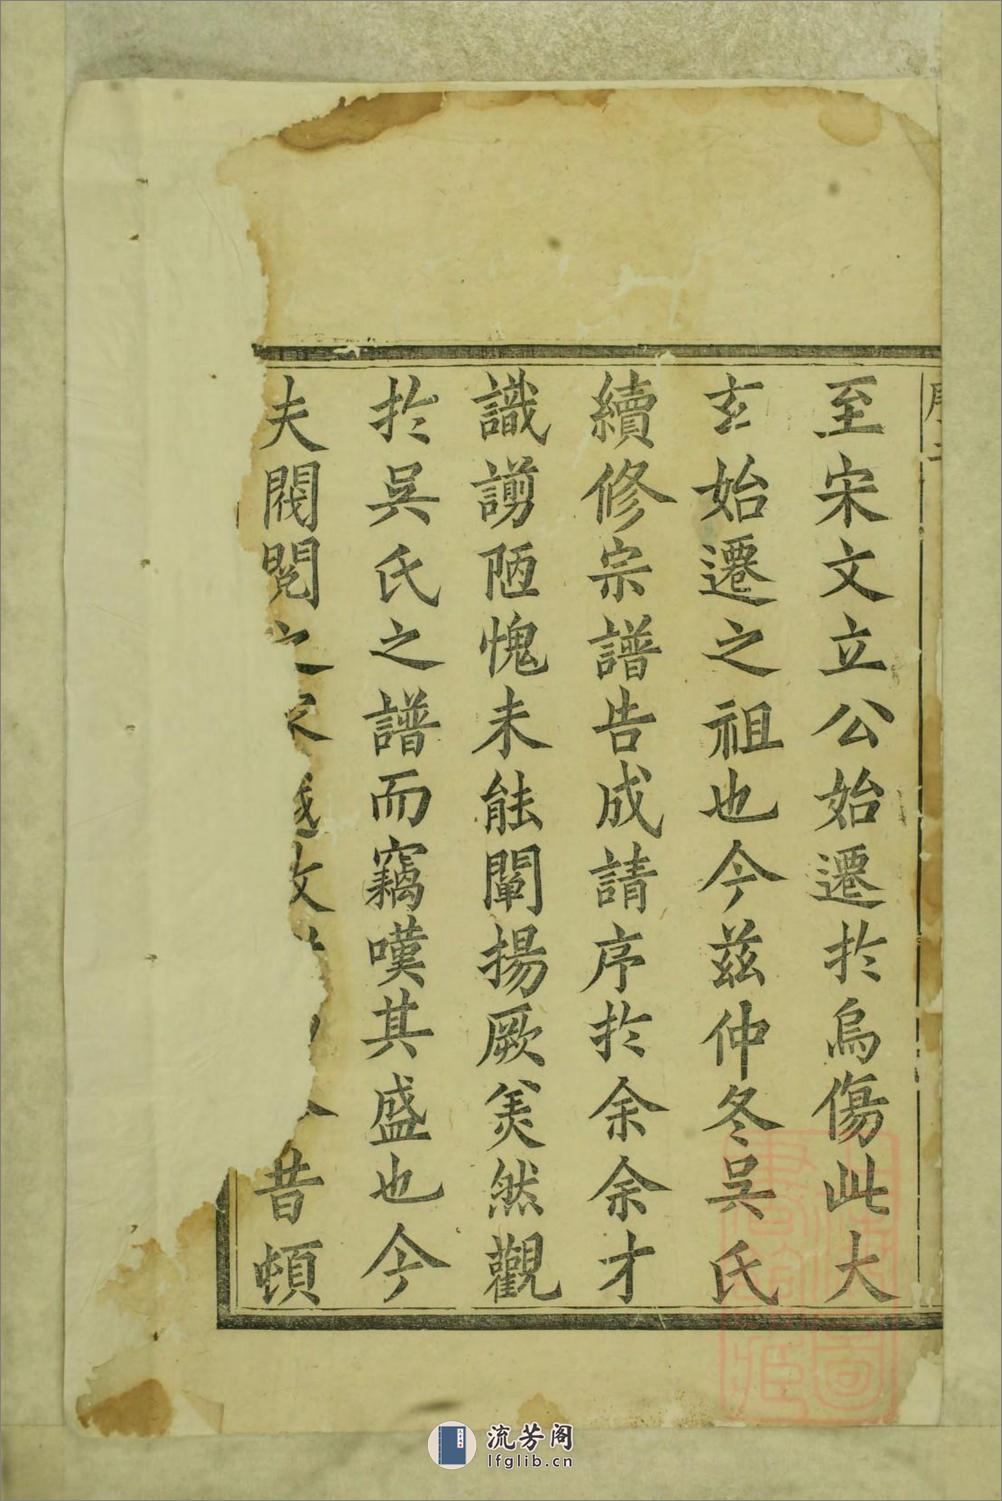 至宋文立公始遷於烏傷此大
玄始遷之祖也今茲仲冬吴氏
續修宗譜告成請序於余余才
識謭陋愧未能闡揚厥美然觀
於吴氏之譜而竊嘆其盛也今
夫閥閱之家盛
昔頓
流芳阁
lfglib.cn